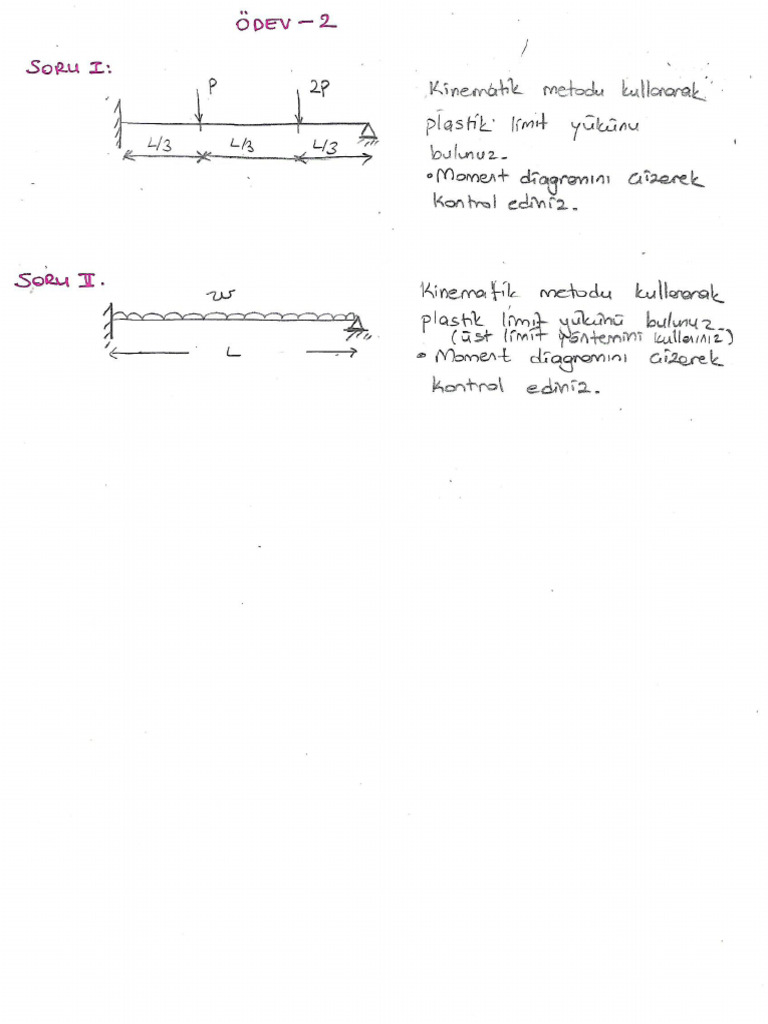 ÖDEV - 2
SORU I:
P
2P
L/3
L/3
L/3
Kinematik metodu kullanarak
plastik limit yükünü
bulunuz.
• Moment diagramını çizerek
kontrol ediniz.
SORU II.
w
L
Kinematik metodu kullanarak
plastik limit yükünü bulunuz.
(üst limit yöntemini kullanınız)
• Moment diagramını çizerek
kontrol ediniz.